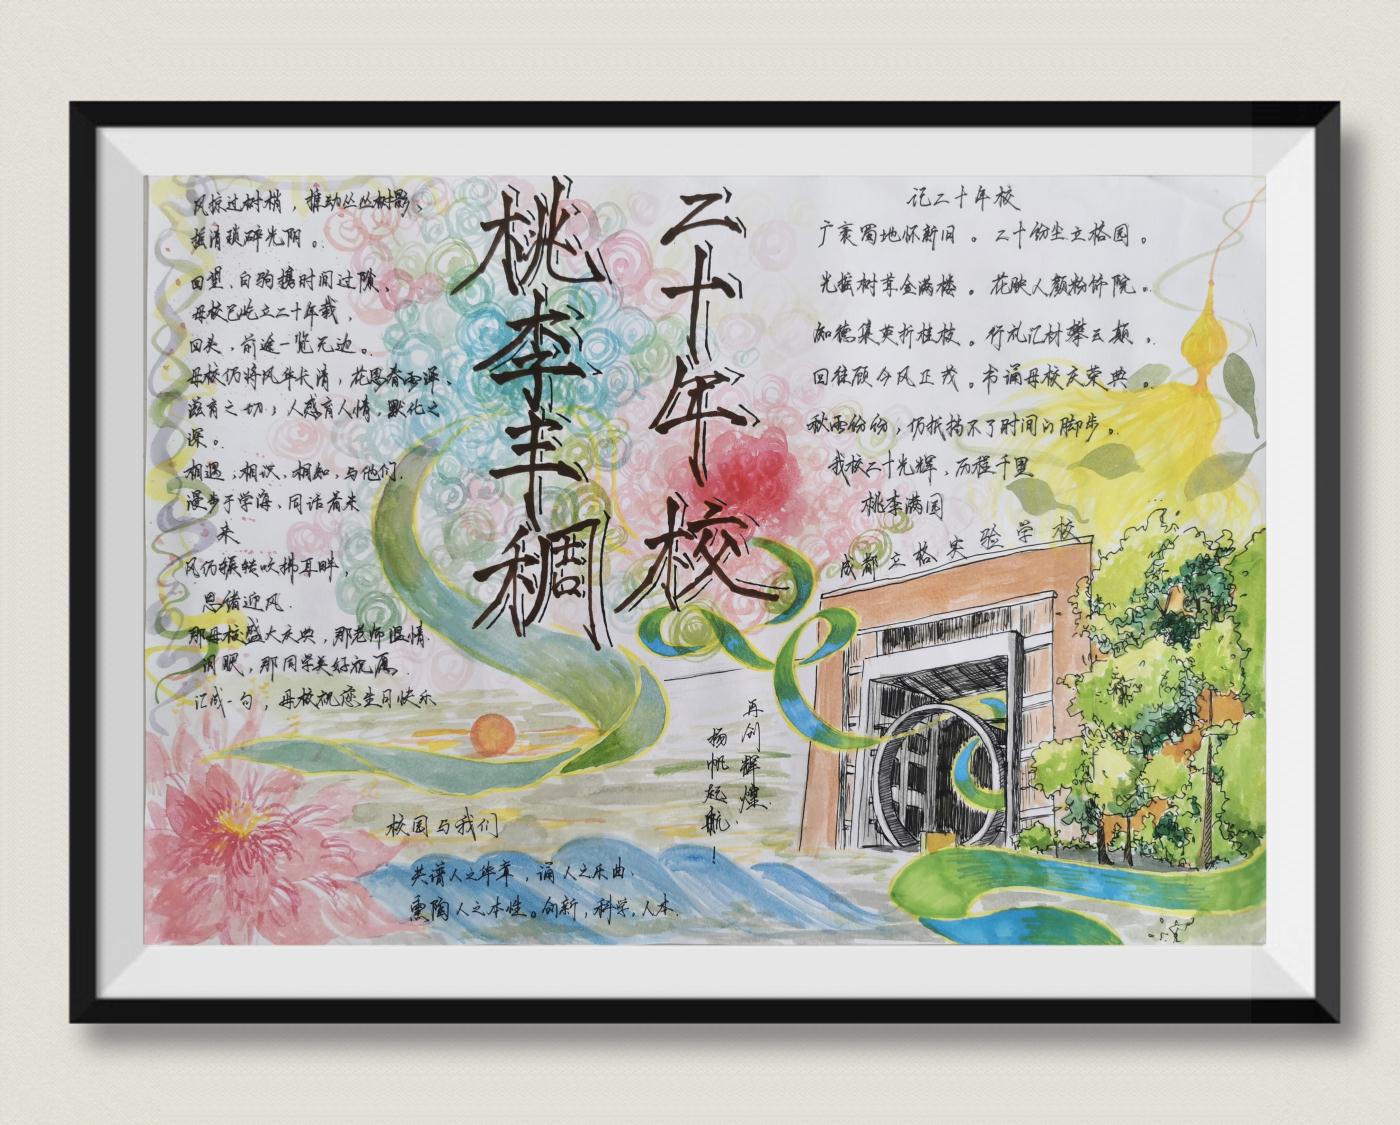 二十年校
桃李丰稠
风掠过树梢，摧动丛丛树影、
摇清琐碎光阴。
回望，白驹携时间过隙、
母校已屹立二十年载，
回头，前途一览无边。
母校仍将风华长清，花思春雨深、
滋育之切；人感育人情，默化之
深。
相遇，相识、相知、与他们
漫步于学海、同话着未
来
风仍辗转吹拂耳畔，
思绪迎风．
那母校盛大庆典，那老师温情
那同学美好祝愿．
汇成一句，母校祝您生日快乐
记二十年校
广袤蜀地怀新旧。二十份坐立格园。
光摇树草金满楼。花映人颜粉饰院。
知德集英折桂枝。行礼记材攀云巅。
回往顾今风正茂。书诵母校庆荣典。
秋雨份份，仍抵挡不了时间的脚步。
我校二十光辉，历程千里
桃李满园
成都立格实验学校
再创辉煌
杨帆起航！
校园与我们
共谱人之华章，诵人之乐曲．
熏陶人之本性。创新，科学，人本．